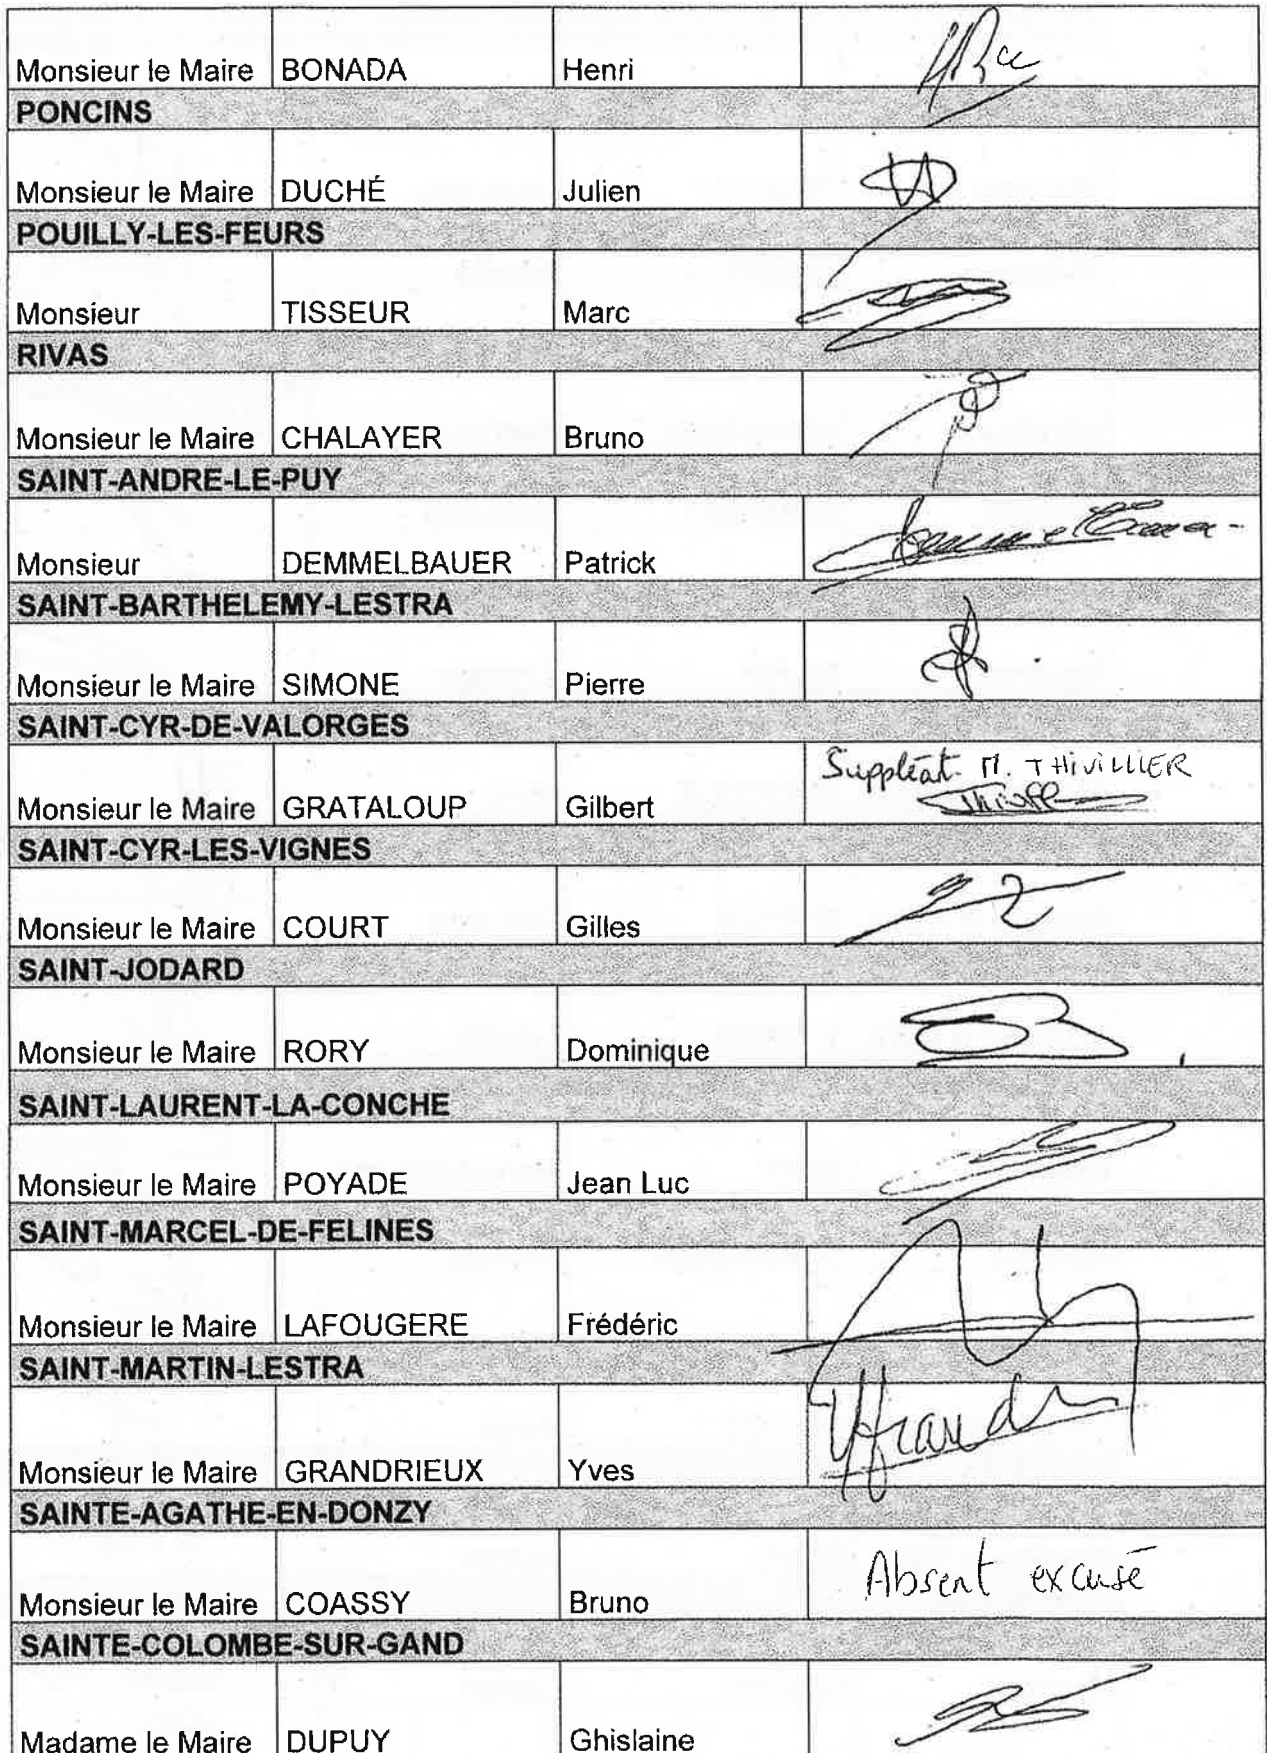 Monsieur le Maire BONADA Henri
PONCINS
Monsieur le Maire DUCHÉ Julien
POUILLY-LES-FEURS
Monsieur TISSEUR Marc
RIVAS
Monsieur le Maire CHALAYER Bruno
SAINT-ANDRE-LE-PUY
Monsieur DEMMELBAUER Patrick
SAINT-BARTHELEMY-LESTRA
Monsieur le Maire SIMONE Pierre
SAINT-CYR-DE-VALORGES
Suppléat M. THIVILLIER
Monsieur le Maire GRATALOUP Gilbert
SAINT-CYR-LES-VIGNES
Monsieur le Maire COURT Gilles
SAINT-JODARD
Monsieur le Maire RORY Dominique
SAINT-LAURENT-LA-CONCHE
Monsieur le Maire POYADE Jean Luc
SAINT-MARCEL-DE-FELINES
Monsieur le Maire LAFOUGERE Frédéric
SAINT-MARTIN-LESTRA
Monsieur le Maire GRANDRIEUX Yves
SAINTE-AGATHE-EN-DONZY
Monsieur le Maire COASSY Bruno Absent excusé
SAINTE-COLOMBE-SUR-GAND
Madame le Maire DUPUY Ghislaine